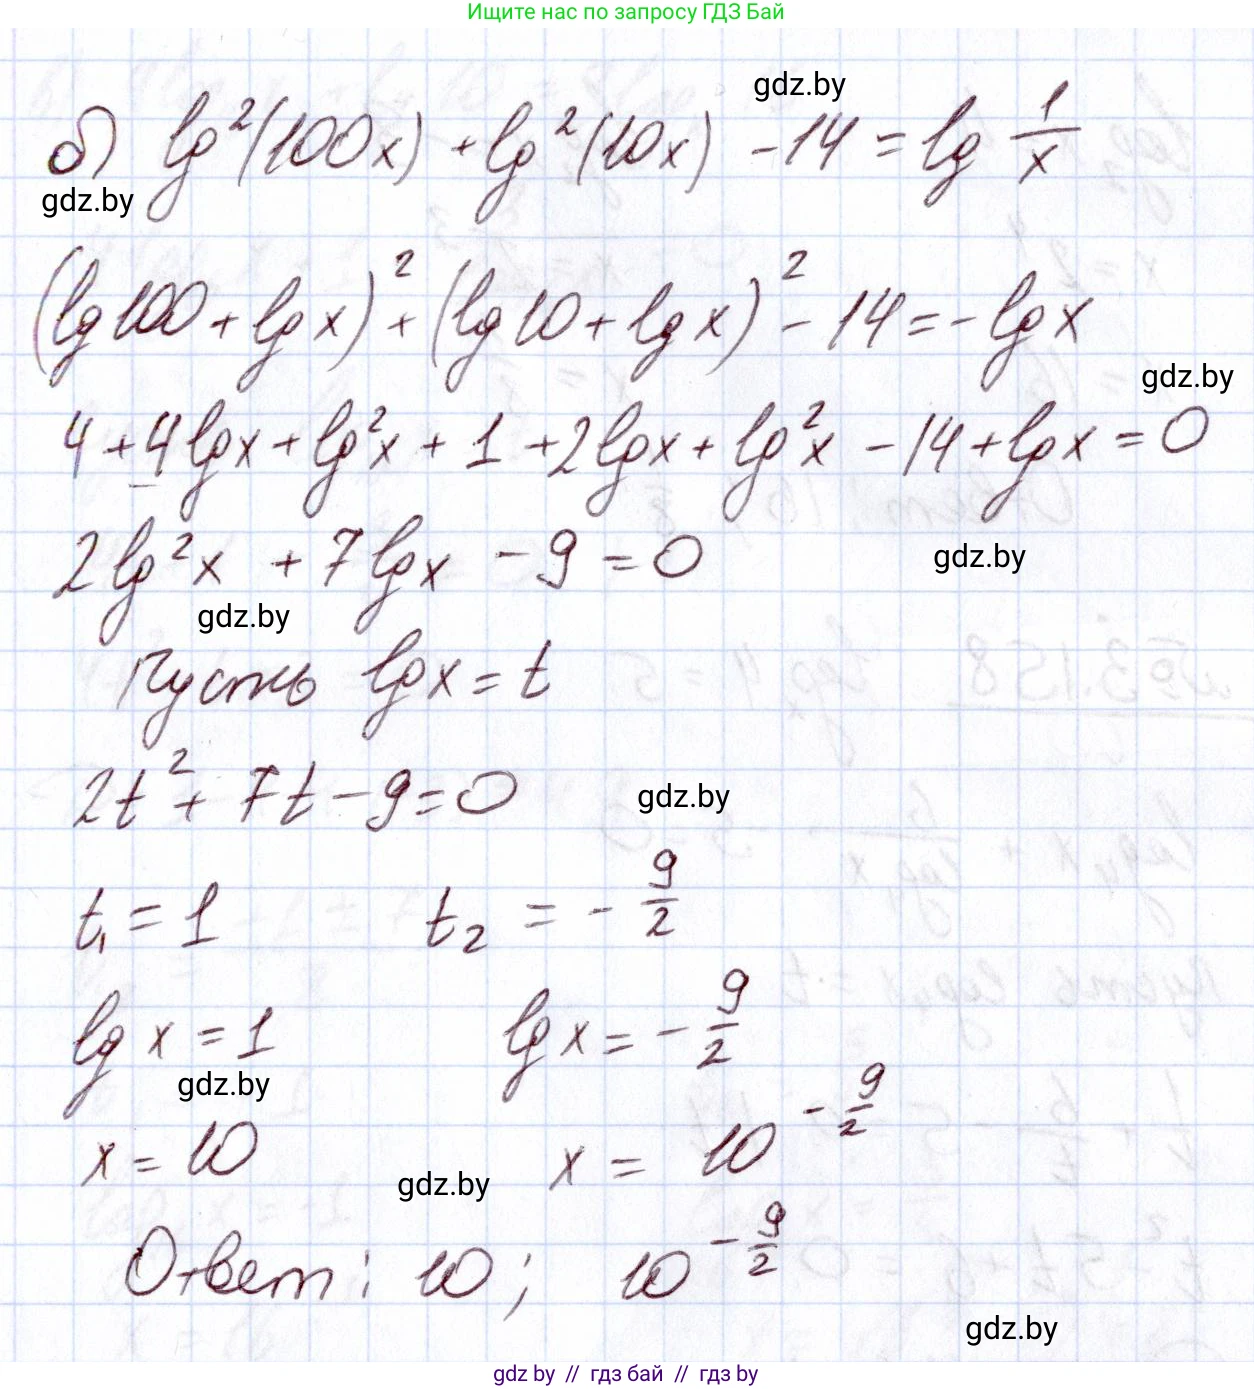 Ищите нас по запросу ГДЗ Бай
gdz.by
б) lg²(100x) + lg²(10x) - 14 = lg 1/x
gdz.by
(lg100 + lg x)² + (lg10 + lg x)² - 14 = - lg x
gdz.by
4 + 4lgx + lg²x + 1 + 2lgx + lg²x - 14 + lgx = 0
2lg²x + 7lgx - 9 = 0
gdz.by
gdz.by
Пусть lgx = t
2t² + 7t - 9 = 0
gdz.by
t₁ = 1 t₂ = - 9/2
lg x = 1 lgx = - 9/2
gdz.by
x = 10 x = 10^(-9/2)
gdz.by
Ответ: 10; 10^(-9/2)
gdz.by
gdz.by // гдз бай // гдз by